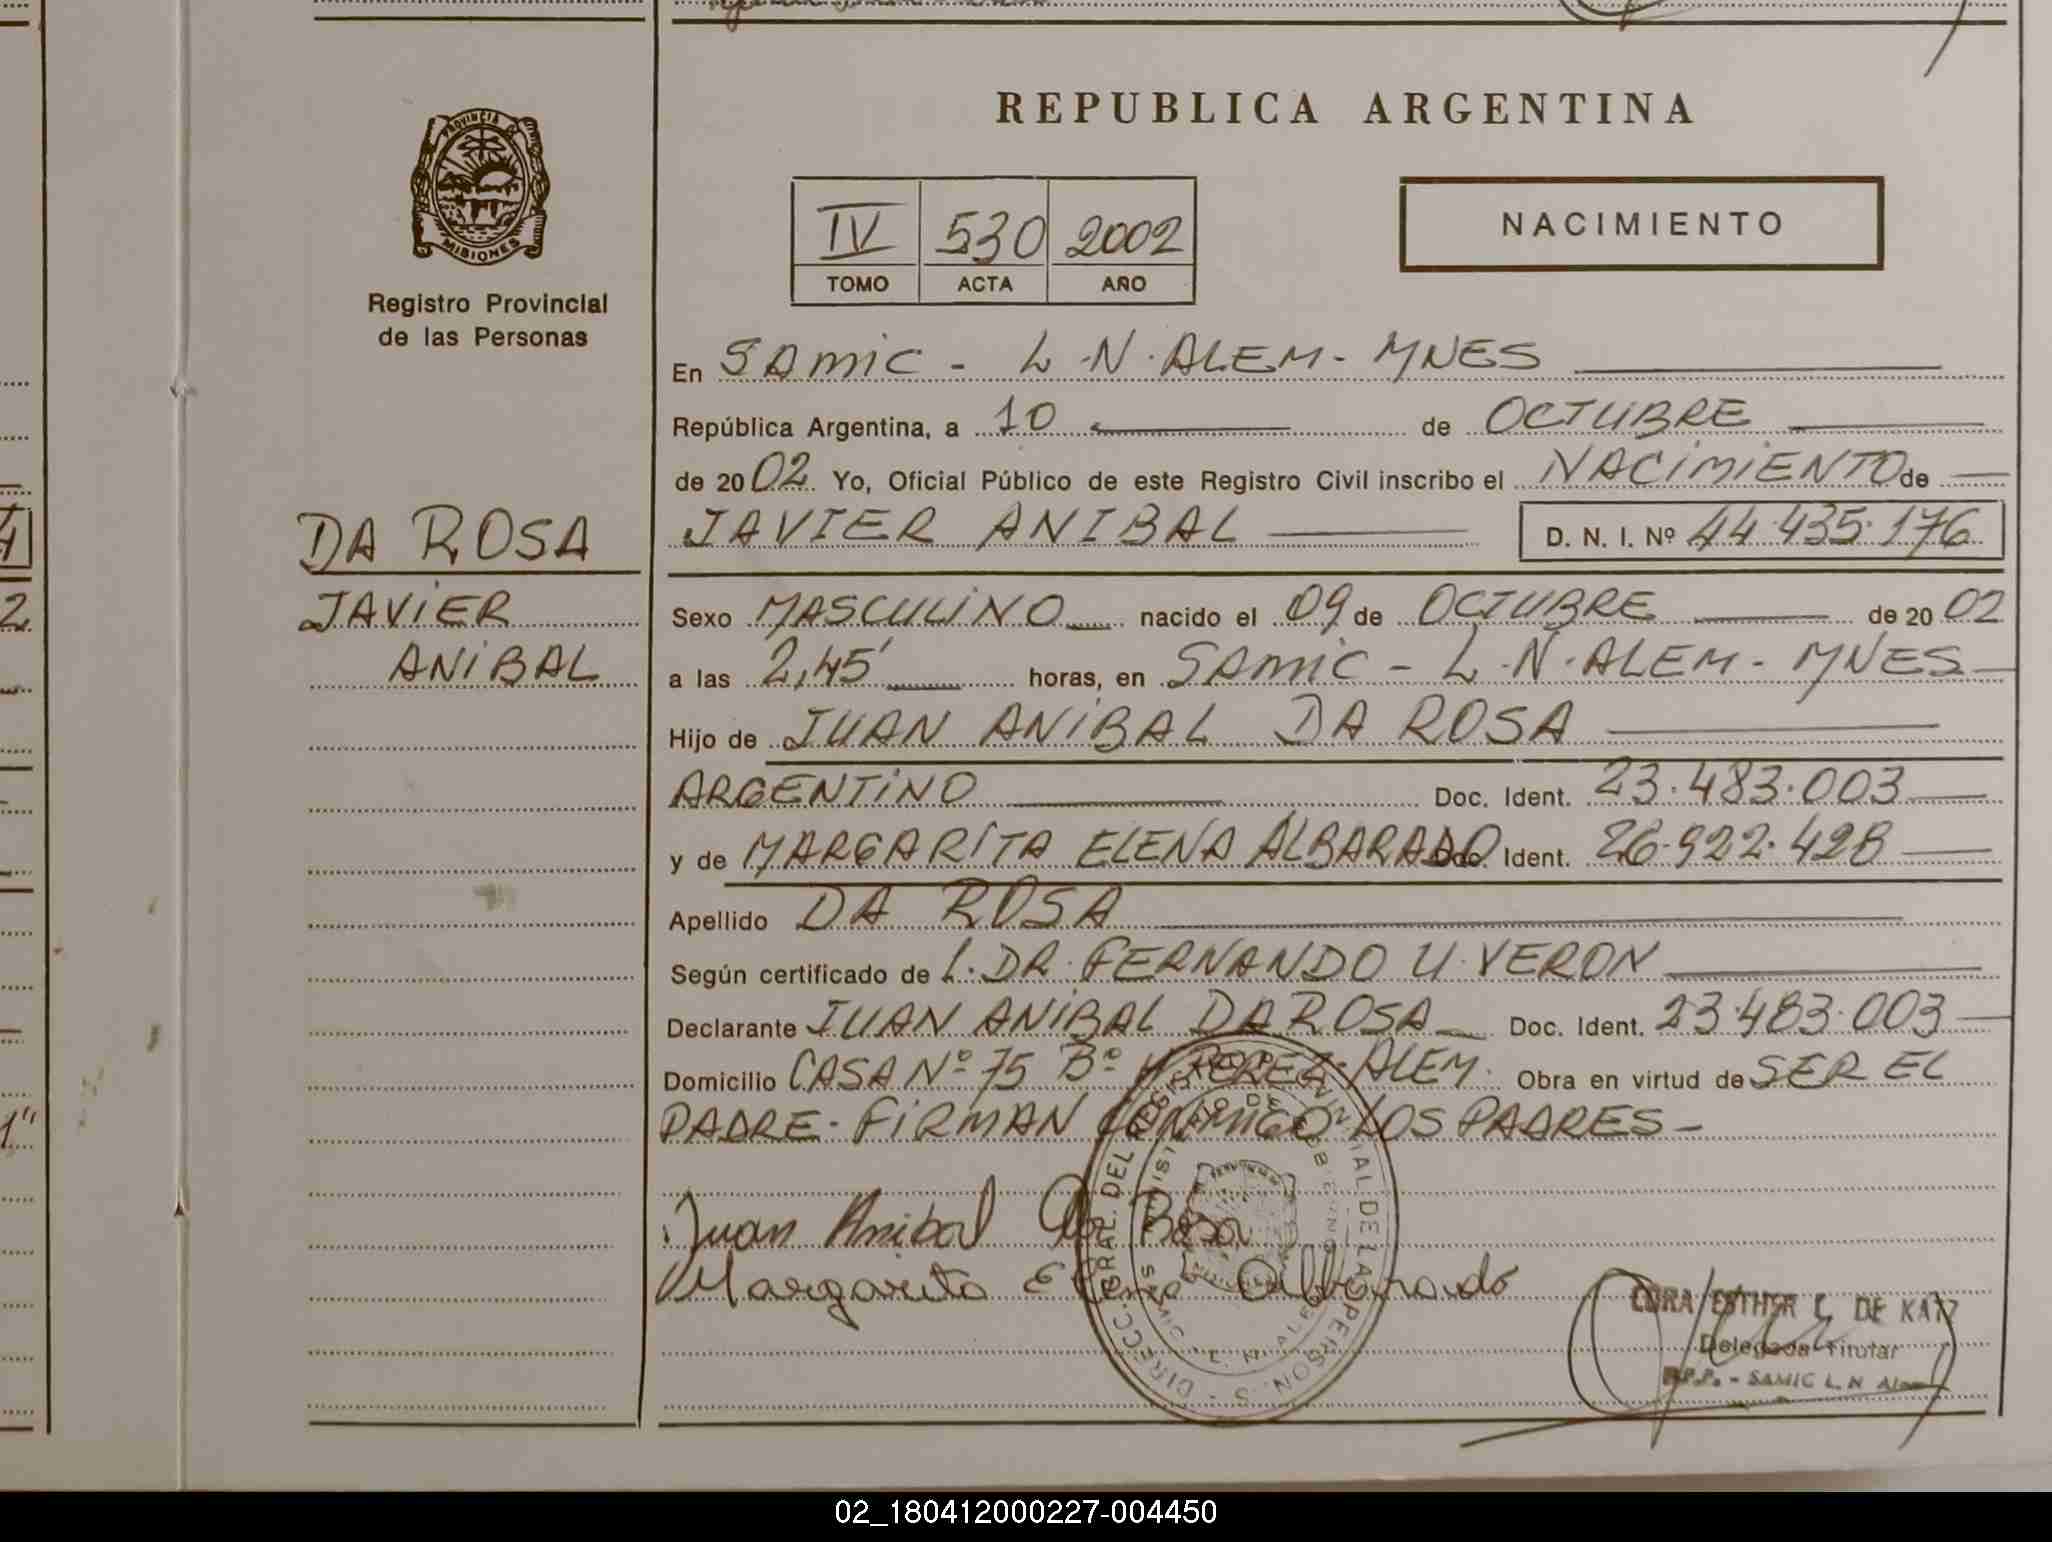 REPUBLICA ARGENTINA
PROVINCIA DE
MISIONES
Registro Provincial
de las Personas
IV 530 2002
TOMO ACTA AÑO
NACIMIENTO
En SAMIC - L.N.ALEM - MNES
República Argentina, a 10 de OCTUBRE
de 2002 Yo, Oficial Público de este Registro Civil inscribo el NACIMIENTO de
JAVIER ANIBAL D. N. I. Nº 44.435.176
DA ROSA
JAVIER
ANIBAL
Sexo MASCULINO nacido el 09 de OCTUBRE de 2002
a las 2,45' horas, en SAMIC - L.N.ALEM - MNES
Hijo de JUAN ANIBAL DA ROSA
ARGENTINO Doc. Ident. 23.483.003
y de MARGARITA ELENA ALBARADO Doc. Ident. 26.922.428
Apellido DA ROSA
Según certificado de L. DR. FERNANDO U. VERON
Declarante JUAN ANIBAL DA ROSA Doc. Ident. 23.483.003
Domicilio CASA Nº 75 Bº Y. PEREZ - ALEM. Obra en virtud de SER EL
PADRE - FIRMAN CONMIGO LOS PADRES -
Juan Anibal Da Rosa
Margarita Elena Albarado
ESTHER L. DE KATZ
Delegada Titular
R.P.P. - SAMIC L.N Alem
02_180412000227-004450